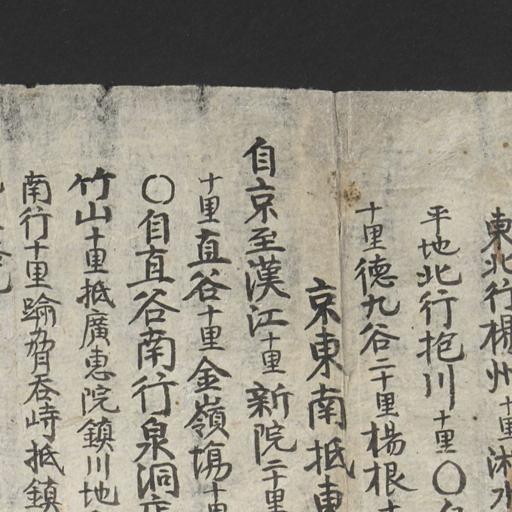 東北行楊州十里沭水
平地北行抱川十里〇自
十里德九谷二十里楊根十
京東南抵東
自京至漢江十里新院二十里
十里直谷十里金嶺塲十
〇自直谷南行泉洞店
竹山十里抵廣惠院鎮川地
南行十里踰胷吞峙抵鎮